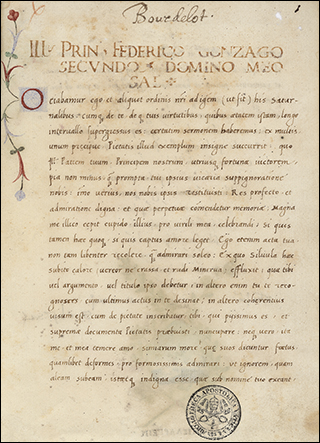 Bourdelot.
ILL. PRIN. FEDERICO GONZAGO
SECVNDO DOMINO MEO
SAL.
Ociabamur ego et aliquot ordinis nri ad igem (ut fit) his Satur-
nalibus: cumq de te, deq tuis virtutibus, quibus aetatem istam, longo
intervallo supergressus es: certatim sermonem haberemus: ex multis
unum precipue Pietatis illud exemplum insigne succurrit: quo
Ill. Patrem tuum, Principem nostrum, utriusq fortunae victorem,
pia non minus, q prompta tui ipsius vicaria suppignoratione
nobis: imo verius, nos nobis ipsos restituisti: Res profecto et
admiratione digna: et quae perpetuae commendetur memoriae. Magna
me illico cepit cupido, illius, pro virili mea, celebrandi: si quis
tamen haec quoq, si quis captus amore leget. Ego etenim acta tua
non tam libenter recolere, q admirari soleo. Ex quo Silvula haec
subito calore, vereor ne crassa et rudi Minerva, effluxit: quae tibi
vel argumento, vel titulo ipso debetur: in altero enim tu te recog-
noscere, cum ultimus actus in te desinat: in altero coherentius
visum est: cum de pietate inscribatur: tibi, qui piissimus es: et
supremae documenta Pietatis praebuisti: nuncupere: neq vero, ita
me, et mea temere amo, simiarum more, quae suos dicuntur foetus
quamlibet deformes, pro formosissimis admirari: ut ignorem, quam
aleam subeam, istaeq indigna esse, quae sub nomine tuo exeant.